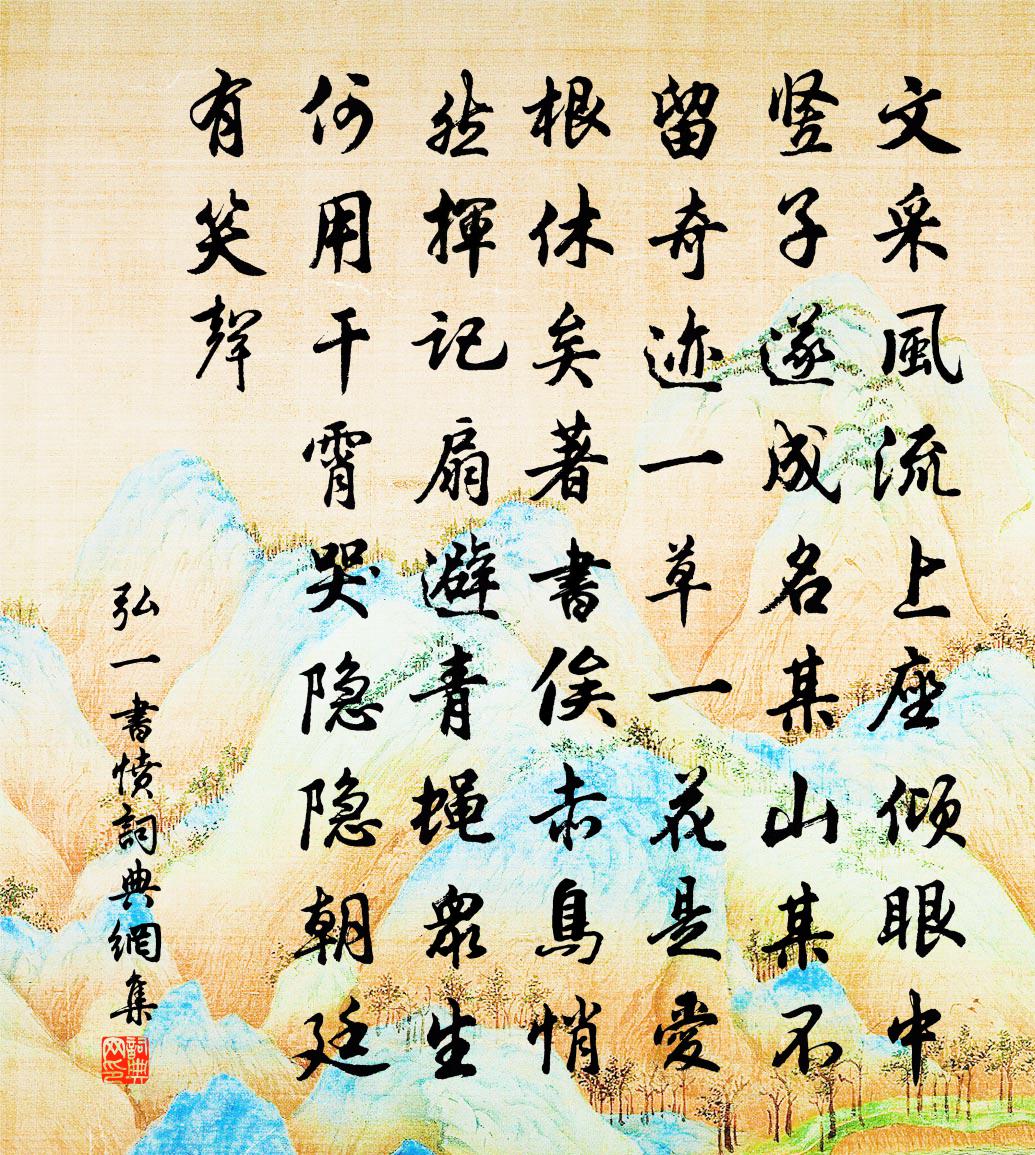 文采風流上座傾眼中
竖子遂成名某山某不
留奇迹一草一花是愛
根休矣著書俟赤鳥悄
然揮記扇避青蝇眾生
何用干霄哭隐隐朝廷
有笑聲
弘一書憤詞典網集
詞典网印